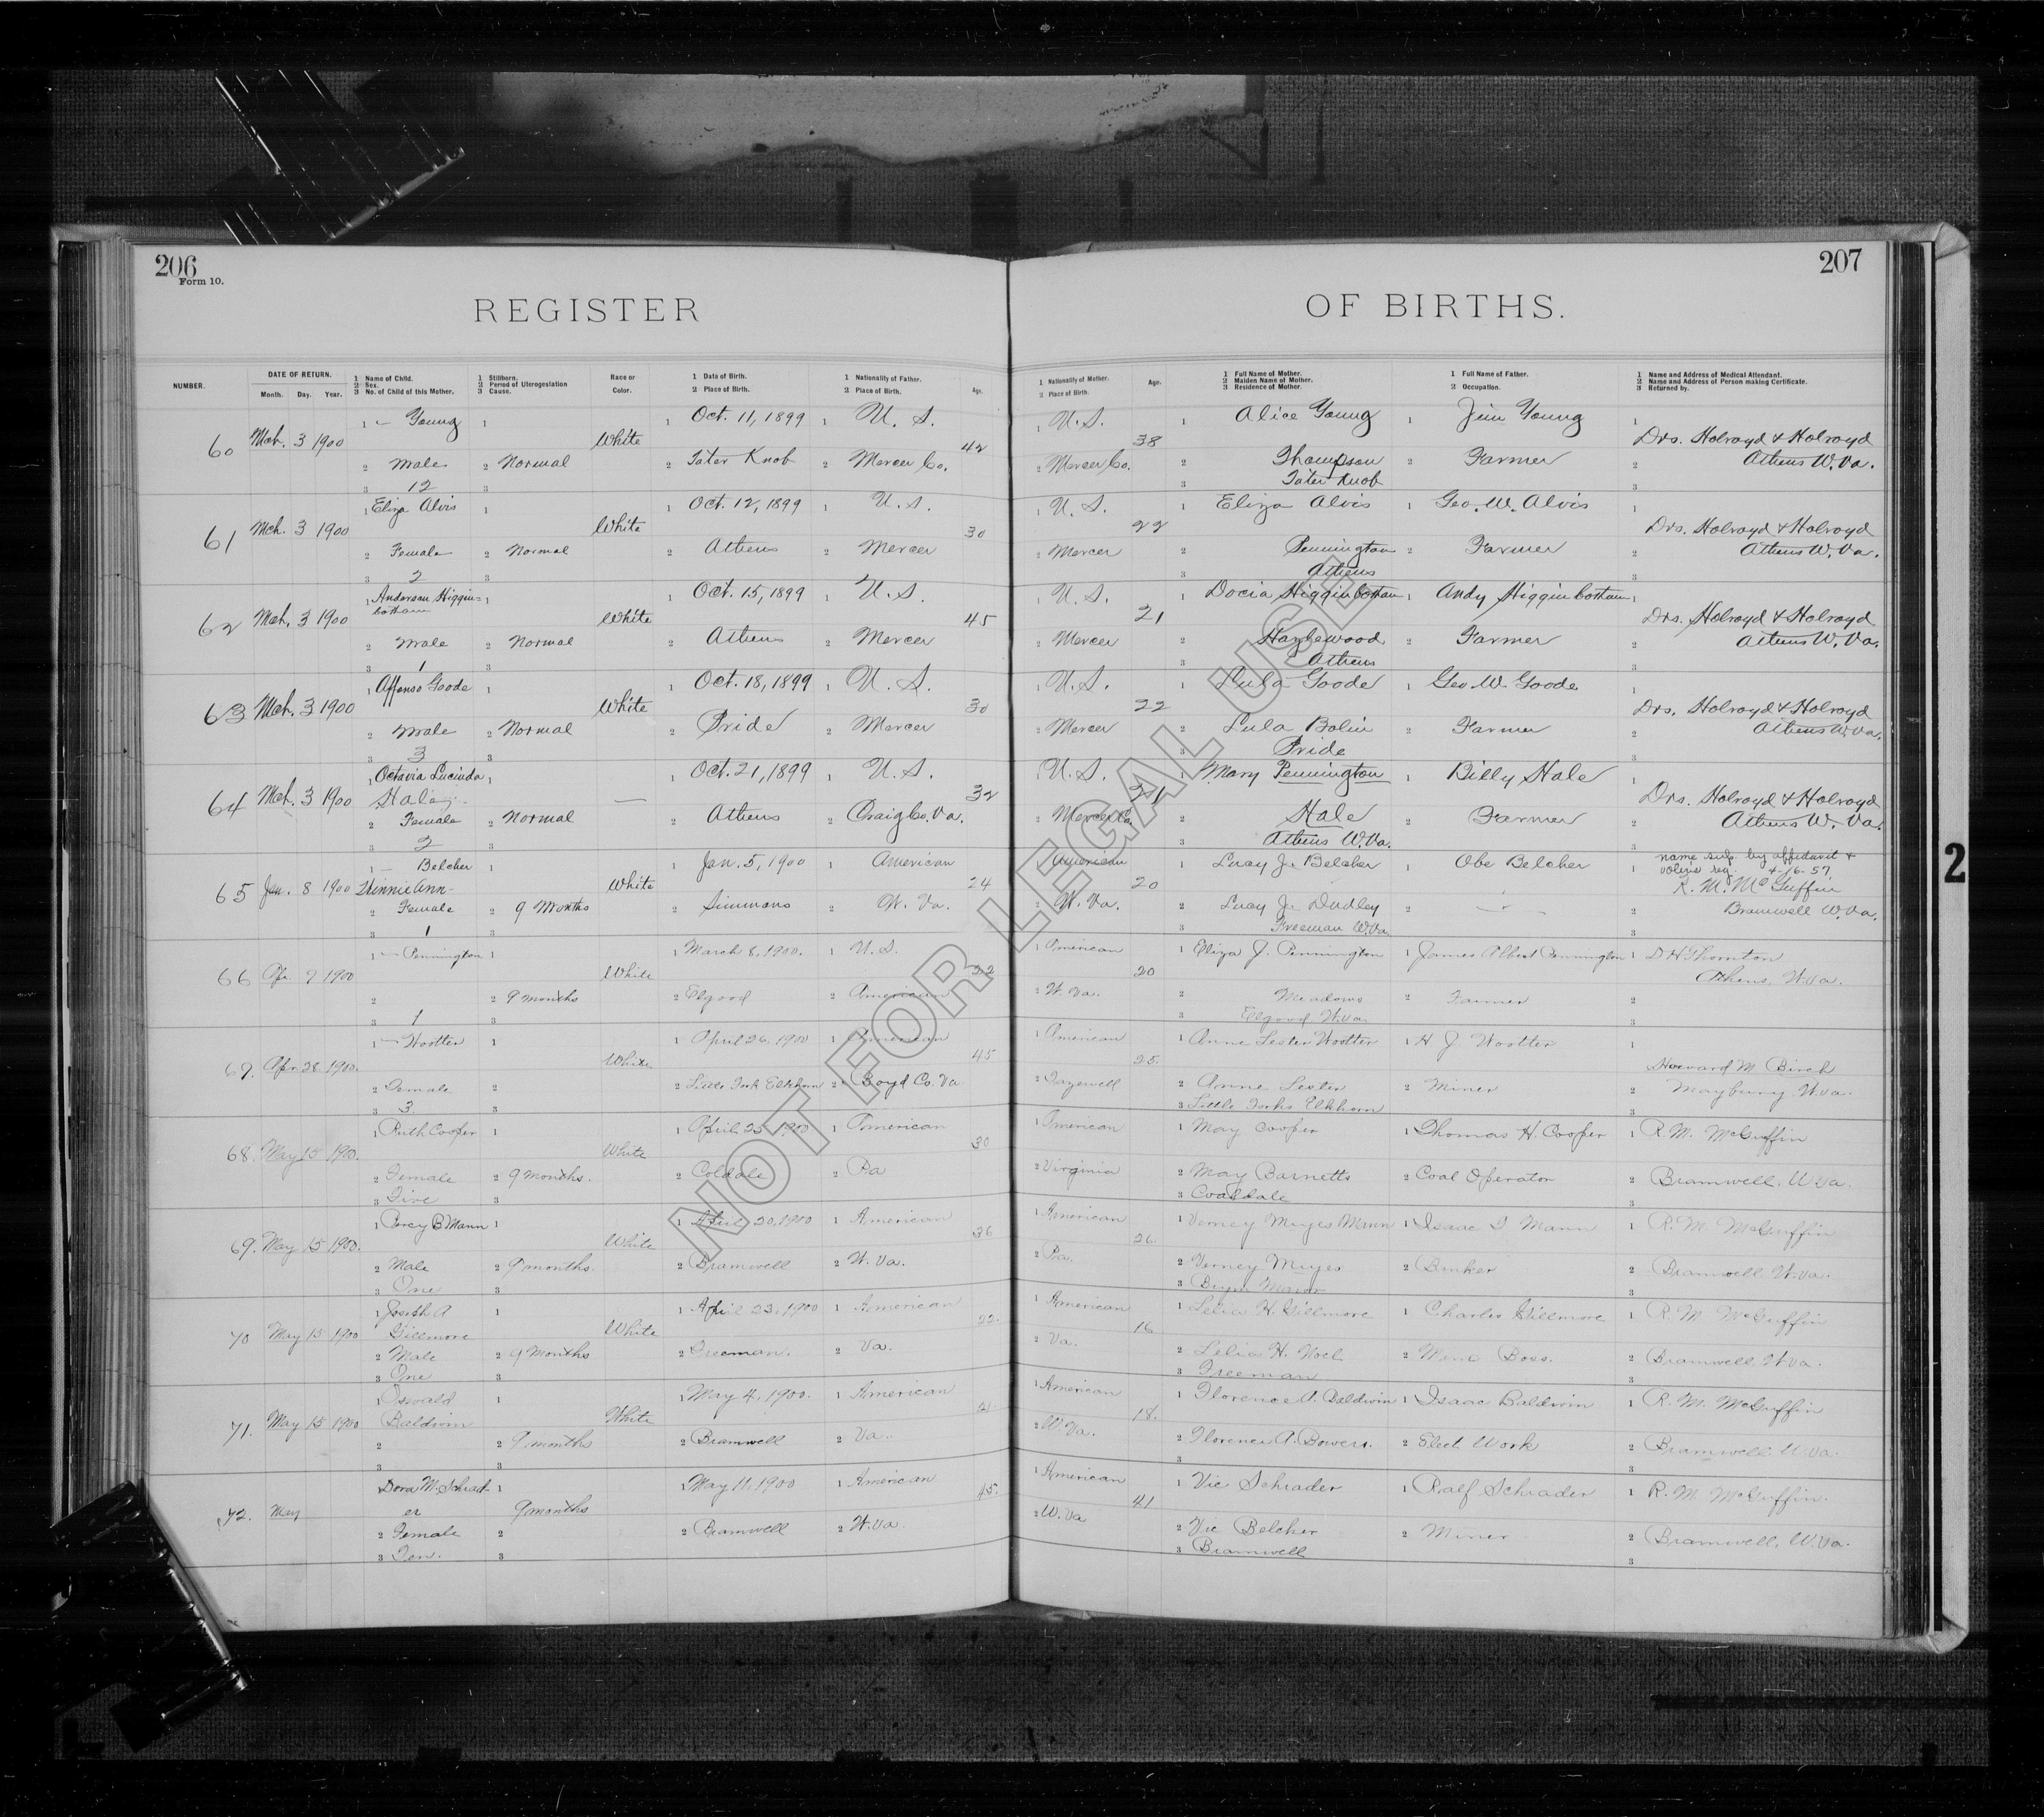 206
Form 10.
REGISTER
NUMBER.
DATE OF RETURN.
Month. Day. Year.
1 Name of Child.
2 Sex.
3 No. of Child of this Mother.
1 Stillborn.
2 Period of Uterogestation
3 Cause.
Race or
Color.
1 Date of Birth.
2 Place of Birth.
1 Nationality of Father.
2 Place of Birth.
Age.
60 Mch. 3 1900
1 — Young 1 White 1 Oct. 11, 1899 1 U. S. 42
2 Male 2 Normal 2 Tater Knob 2 Mercer Co.
3 12 3
61 Mch. 3 1900
1 Eliza Alvis 1 White 1 Oct. 12, 1899 1 U. S. 30
2 Female 2 Normal 2 Athens 2 Mercer
3 2 3
62 Mch. 3 1900
1 Anderson Higgin= 1 White 1 Oct. 15, 1899 1 U. S. 45
botham
2 Male 2 Normal 2 Athens 2 Mercer
3 1 3
63 Mch. 3 1900
1 Affonso Goode 1 White 1 Oct. 18, 1899 1 U. S. 30
2 Male 2 Normal 2 Pride 2 Mercer
3 3 3
64 Mch. 3 1900
1 Octavia Lucinda 1 — 1 Oct. 21, 1899 1 U. S. 32
Hale
2 Female 2 Normal 2 Athens 2 Craig Co. Va.
3 2 3
65 Jan. 8 1900
1 — Belcher 1 White 1 Jan. 5, 1900 1 American 24
Ann
2 Female 2 9 Months 2 Simmons 2 W. Va.
3 1 3
66 Apr. 7 1900
1 — Pennington 1 White 1 March 8, 1900. 1 U. S. 22
2 2 9 months 2 Elgood 2 American
3 1 3
67. Apr. 28 1900.
1 — Wootten 1 White 1 April 26, 1900 1 American 45
2 Female 2 2 Little Fork Elkhorn 2 Boyd Co. Va
3 3. 3
68. May 15 1900.
1 Ruth Cooper 1 White 1 April 1900 1 American 30
2 Female 2 9 months. 2 Coldale 2 Pa
3 Five 3
69. May 15 1900.
1 Percy B Mann 1 White 1 April 20, 1900 1 American 36
2 Male 2 9 months. 2 Bramwell 2 W. Va.
3 One 3
70 May 15 1900
1 Joseph A 1 White 1 April 23, 1900 1 American 22.
Gillmore
2 Male 2 9 Months 2 Freeman. 2 Va.
3 One 3
71. May 15 1900
1 Oswald 1 White 1 May 4, 1900. 1 American
Baldwin
2 2 9 months 2 Bramwell 2 Va.
3 3
72. May
Dora M. Schrad 1 1 May 11, 1900 1 American 45.
er 9 months
2 Female 2 2 Bramwell 2 W. Va.
3 Ten. 3
207
OF BIRTHS.
1 Nationality of Mother.
2 Place of Birth.
Age.
1 Full Name of Mother.
2 Maiden Name of Mother.
3 Residence of Mother.
1 Full Name of Father.
2 Occupation.
1 Name and Address of Medical Attendant.
2 Name and Address of Person making Certificate.
3 Returned by.
1 U. S. 38 1 Alice Young 1 Jim Young 1 Drs. Holroyd & Holroyd
2 Mercer Co. 2 Thompson 2 Farmer 2 Athens W. Va.
3 Tater Knob 3
1 U. S. 22 1 Eliza Alvis 1 Geo. W. Alvis Drs. Holroyd & Holroyd
2 Mercer 2 Pennington 2 Farmer 2 Athens W. Va.
3 Athens 3
1 U. S. 21 1 Docia Higginbotham 1 Andy Higginbotham 1 Drs. Holroyd & Holroyd
2 Mercer 2 Hazlewood 2 Farmer 2 Athens W. Va.
3 Athens 3
1 U. S. 22 1 Lula Goode 1 Geo. W. Goode 1 Drs. Holroyd & Holroyd
2 Mercer 2 Lula Bolin 2 Farmer 2 Athens W. Va.
3 Pride 3
1 U. S. 1 Mary Pennington 1 Billy Hale 1 Drs. Holroyd & Holroyd
2 Mercer Co. 2 Hale 2 Farmer 2 Athens W. Va.
3 Athens W. Va. 3
1 American 20 1 Lucy J. Belcher 1 Obe Belcher 1 name sup. by affidavit &
4-16-57
R. M. McGuffin
2 W. Va. 2 Lucy J. Dudley 2 2 Bramwell W. Va.
3 Freeman W. Va. 3
1 American 20 1 Eliza J. Pennington 1 James Albert Pennington 1 D H Thornton
Athens, W. Va.
2 W. Va. 2 Meadows 2 Farmer 2
3 Elgood W. Va. 3
1 American 25. 1 Anne Lester Wootten 1 H J. Wootten 1
Howard M Birch
2 Tazewell 2 Anne Lester 2 Miner 2 Maybury W. Va.
3 Little Forks Elkhorn 3
1 American 1 May Cooper 1 Thomas H. Cooper 1 R. M. McGuffin
2 Virginia 2 May Barnetts 2 Coal Operator 2 Bramwell, W. Va.
3 Coaldale
1 American 26. 1 Verney Mann 1 Isaac T Mann 1 R. M. McGuffin
2 Pa. 2 Verney 2 Banker 2 Bramwell W. Va.
3 Bryn Mawr 3
1 American 16 1 Lelia H. Gillmore 1 Charles Gillmore 1 R. M McGuffin
2 Va. 2 Lelia H. Noel 2 Mine Boss. 2 Bramwell W. Va.
3 Freeman 3
1 American 18. 1 Florence A. Baldwin 1 Isaac Baldwin 1 R. M. McGuffin
2 W. Va. 2 Florence A. Bowers. 2 Elect. Work 2 Bramwell W. Va.
3 3
1 American 41 1 Vic Schrader 1 Ralf Schrader 1 R. M. McGuffin.
2 W. Va 2 Vic Belcher 2 Miner 2 Bramwell, W. Va.
3 Bramwell 3
NOT FOR LEGAL USE
2